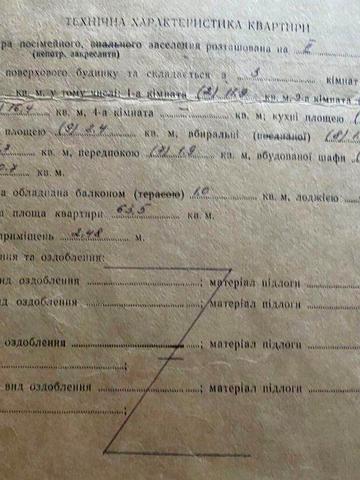 ТЕХНІЧНА ХАРАКТЕРИСТИКА КВАРТИРИ
ра посімейного, спального заселення розташована на II
(непотр. закреслити)
поверхового будинку та складається з 3 кімнат
кв. м, у тому числі: 1-а кімната (2) 11.9 кв. м, 2-а кімната
16,4 кв. м, 4-а кімната — кв. м; кухні площею
площею (9) 2.4 кв. м, вбиральні (поєднаної) (8) 1.
кв. м, передпокою (7) 1.9 кв. м, вбудованої шафи
0.7 кв. м.
а обладнана балконом (терасою) 1,0 кв. м, лоджією
а площа квартири 63,5 кв. м.
приміщень 2,48 м.
ння та оздоблення:
вид оздоблення ; матеріал підлоги
ид оздоблення ; матеріал підлоги
оздоблення ; матеріал підлоги
;
вид оздоблення ; матеріал підлоги
;